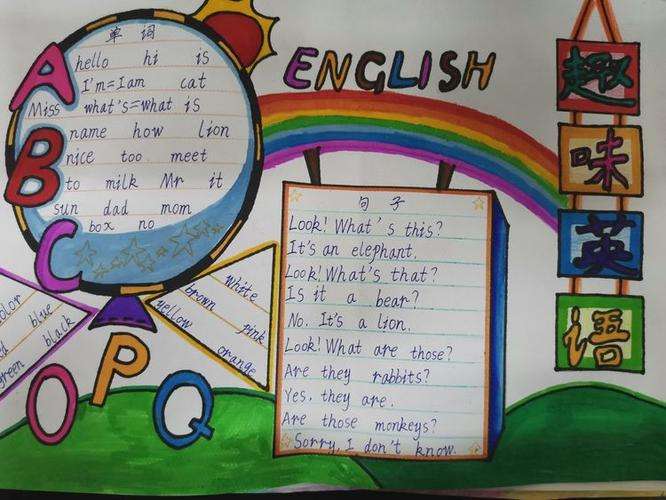 A
B
C
单 词
hello hi is
I'm=I am cat
Miss what's=what is
name how lion
nice too meet
to milk Mr it
sun dad mom
box no
ENGLISH
趣
味
英
语
句 子
Look! What's this?
It's an elephant.
Look! What's that?
Is it a bear?
No. It's a lion.
Look! What are those?
Are they rabbits?
Yes, they are.
Are those monkeys?
Sorry, I don't know.
blue
black
green
white
brown
yellow
pink
orange
O P Q